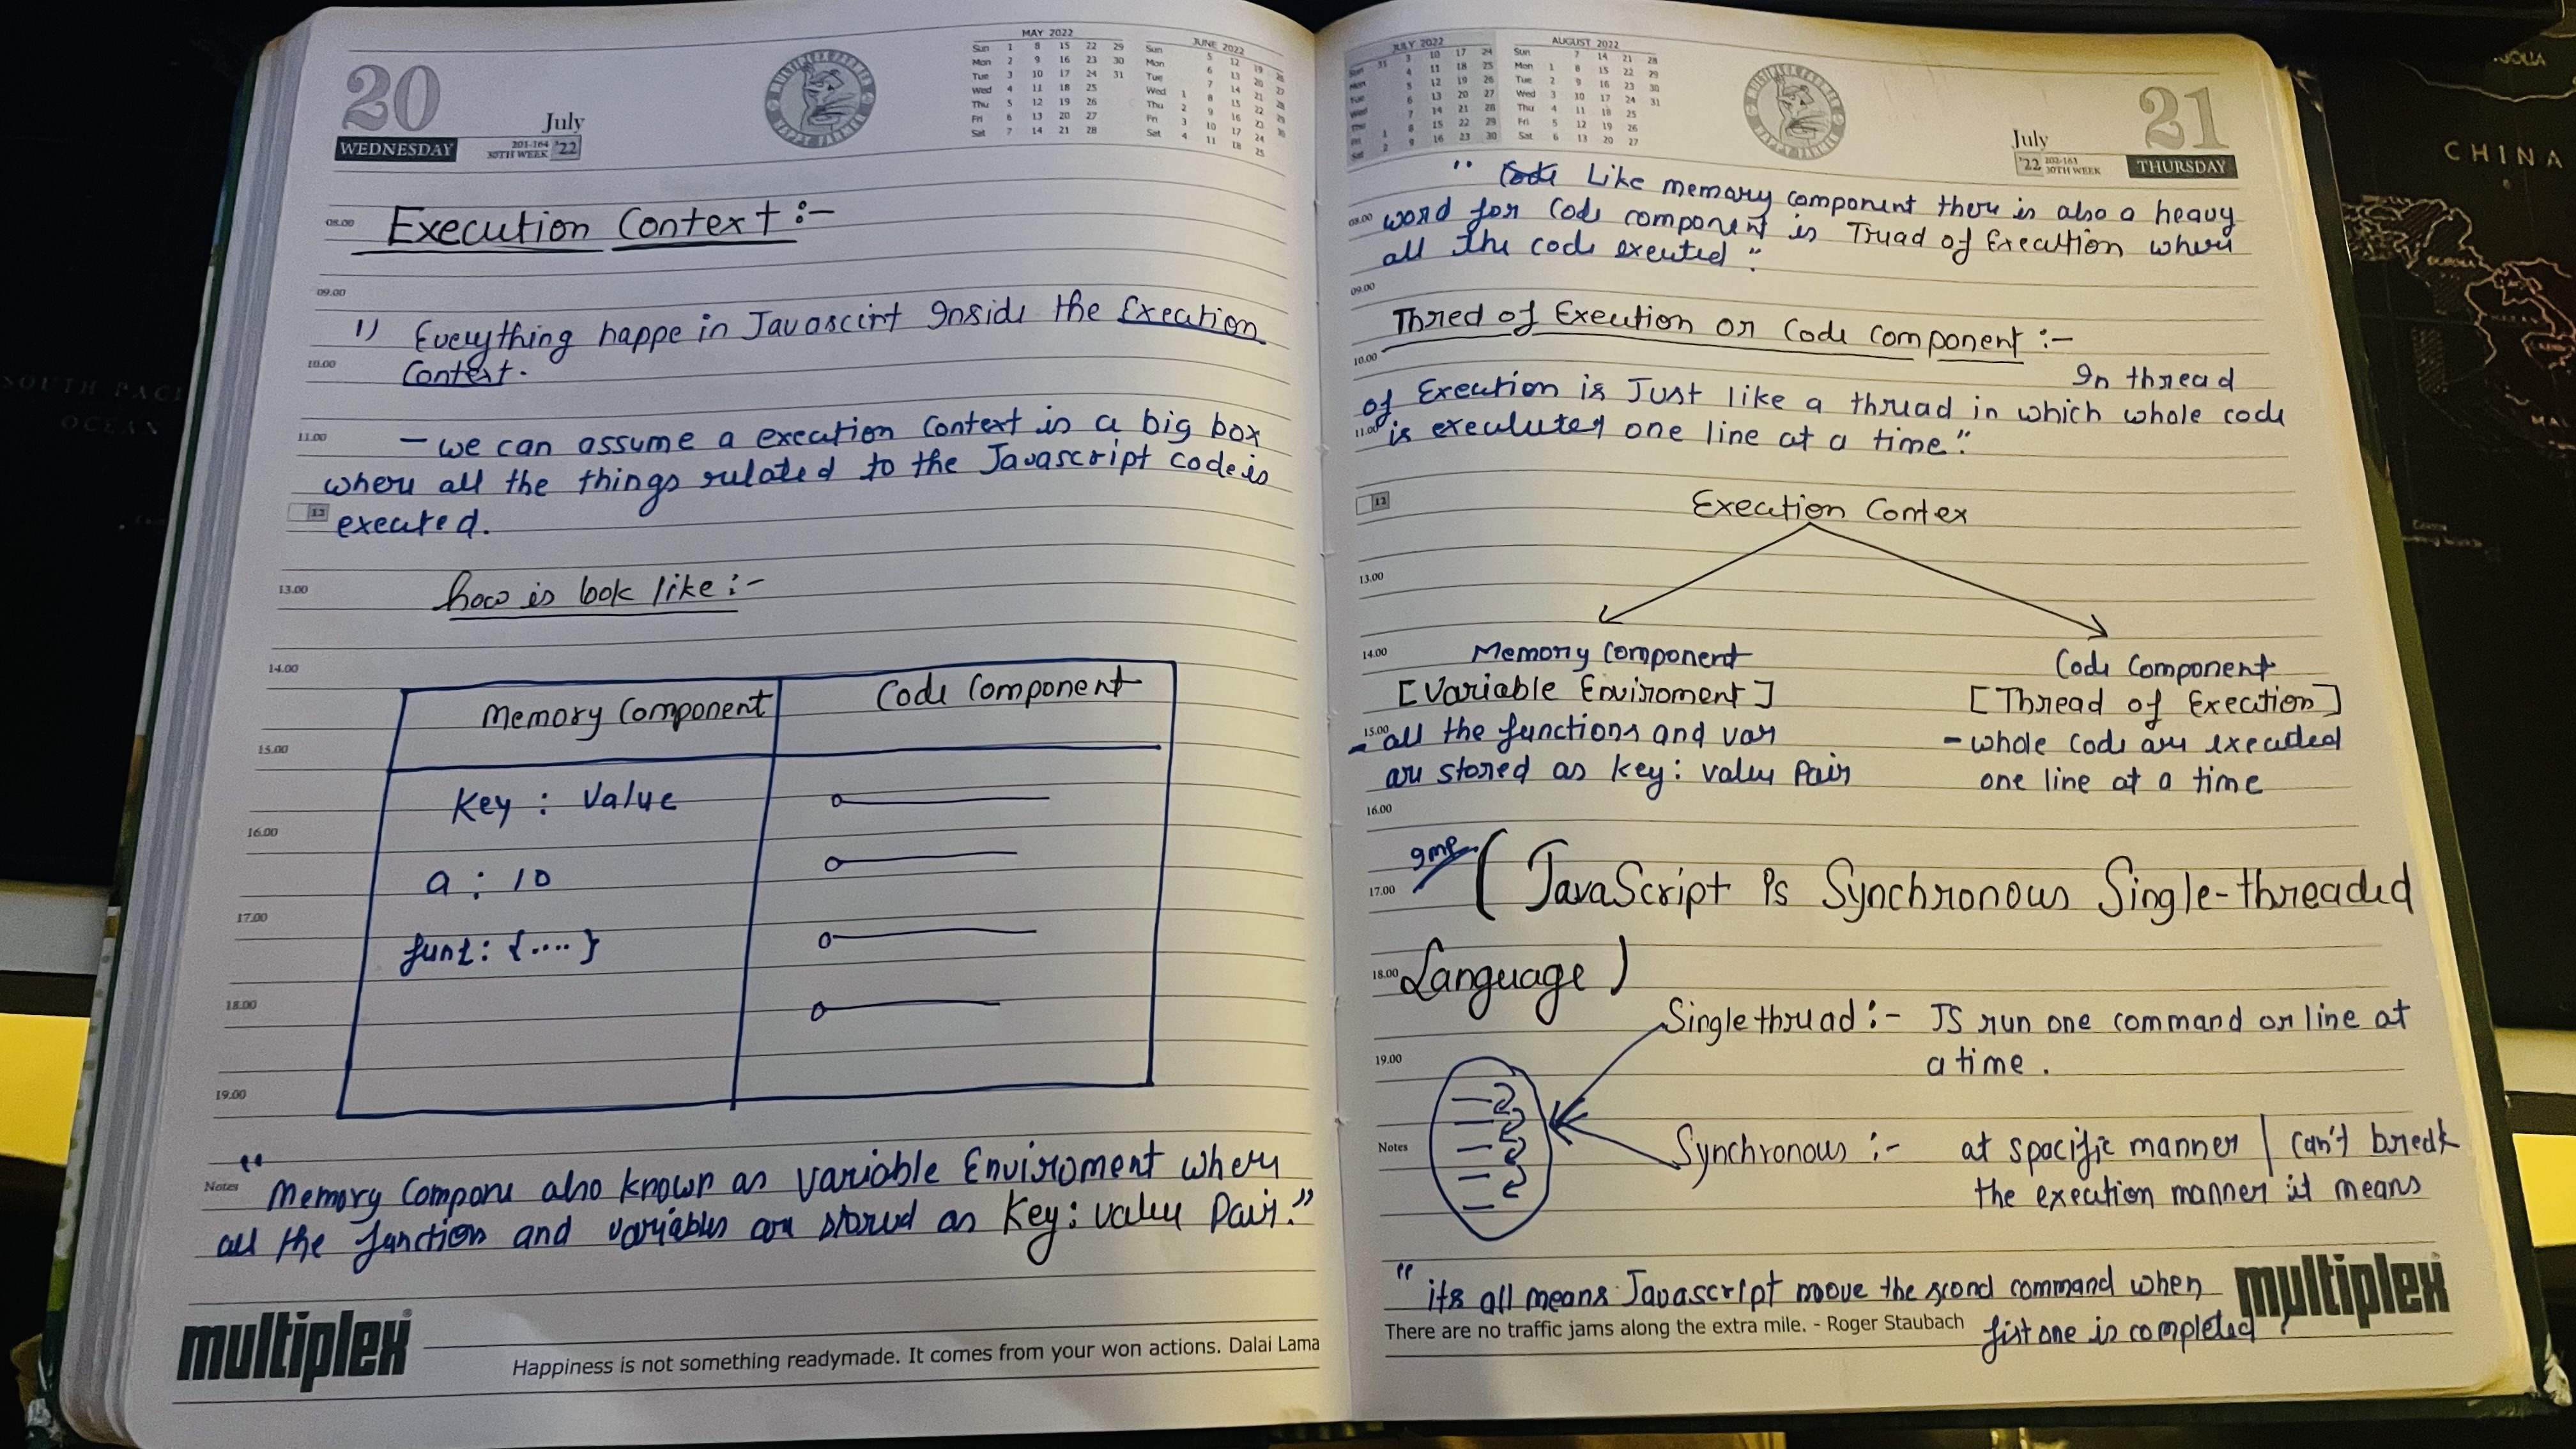 20
July
WEDNESDAY
201-164
30TH WEEK
'22
MAY 2022
Sun 1 8 15 22 29
Mon 2 9 16 23 30
Tue 3 10 17 24 31
Wed 4 11 18 25
Thu 5 12 19 26
Fri 6 13 20 27
Sat 7 14 21 28
JUNE 2022
Sun 5 12 19 26
Mon 6 13 20 27
Tue 7 14 21 28
Wed 1 8 15 22 29
Thu 2 9 16 23 30
Fri 3 10 17 24
Sat 4 11 18 25
Execution Context :-
08.00
09.00
1) Everything happe in Javascirt Inside the Exection
10.00
Context.
11.00
- we can assume a exection Context is a big box
where all the things related to the Javascript code is
12
executed.
13.00
how is look like :-
14.00
Memory Component Code Component
15.00
Key : Value
16.00
a : 10
17.00
18.00
19.00
Notes
" Memory Compone also known as variable Enviroment where
all the function and variables are stored as Key : value Pair."
multiplex
Happiness is not something readymade. It comes from your won actions. Dalai Lama
JULY 2022
Sun 31 3 10 17 24
Mon 4 11 18 25
Tue 5 12 19 26
Wed 6 13 20 27
Thu 7 14 21 28
Fri 1 8 15 22 29
Sat 2 9 16 23 30
AUGUST 2022
Sun 7 14 21 28
Mon 1 8 15 22 29
Tue 2 9 16 23 30
Wed 3 10 17 24 31
Thu 4 11 18 25
Fri 5 12 19 26
Sat 6 13 20 27
21
July
'22
202-163
30TH WEEK
THURSDAY
" Like memory component there is also a heavy
08.00
word for Code component is Tread of Execution where
all the code exeuted "
09.00
Thred of Exeution or Code Component :-
10.00
In thread
of Exeution is Just like a thread in which whole code
11.00
is one line at a time."
12
Exection Contex
13.00
14.00
Memory Component Code Component
[Variable Enviroment] [Thread of Exection]
15.00
- all the functions and var - whole code are executed
are stored as key : value Pair one line at a time
16.00
Imp
17.00
( JavaScript is Synchronous Single-threaded
18.00
Language )
Single thread :- JS run one command or line at
19.00
a time .
Notes
Synchronous :- at spacific manner | can't break
the exection manner it means
" its all means Javascript move the second command when
There are no traffic jams along the extra mile. - Roger Staubach
fist one is completed "
multiplex
CHINA
SOUTH PACI
OCEAN